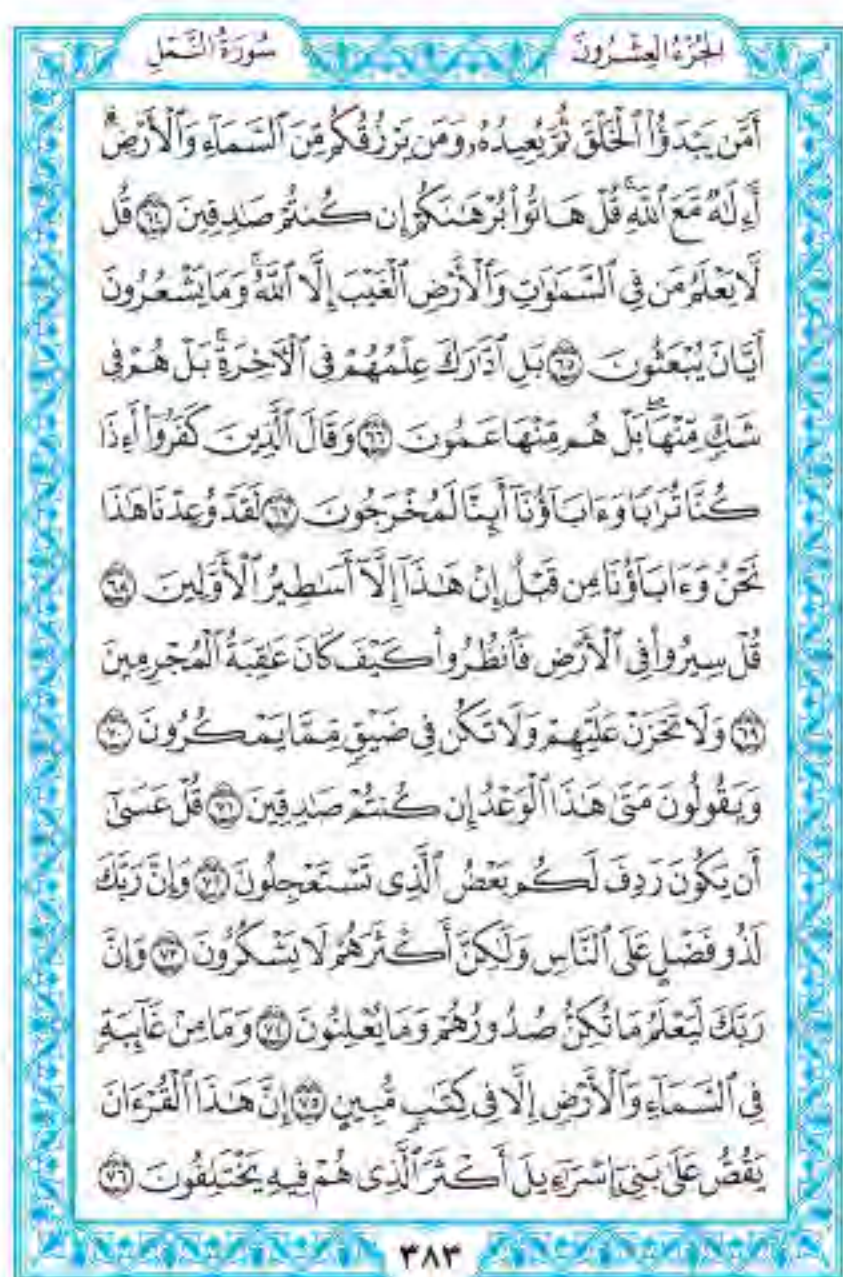 سُورَةُ النَّمْلِ
الجُزْءُ العِشْرُونَ
أَمَّن يَبْدَؤُاْ ٱلْخَلْقَ ثُمَّ يُعِيدُهُۥ وَمَن يَرْزُقُكُم مِّنَ ٱلسَّمَآءِ وَٱلْأَرْضِۗ
أَءِلَٰهٌ مَّعَ ٱللَّهِۚ قُلْ هَاتُواْ بُرْهَٰنَكُمْ إِن كُنتُمْ صَٰدِقِينَ ٦٤ قُل
لَّا يَعْلَمُ مَن فِي ٱلسَّمَٰوَٰتِ وَٱلْأَرْضِ ٱلْغَيْبَ إِلَّا ٱللَّهُۚ وَمَا يَشْعُرُونَ
أَيَّانَ يُبْعَثُونَ ٦٥ بَلِ ٱدَّٰرَكَ عِلْمُهُمْ فِي ٱلْأٓخِرَةِۚ بَلْ هُمْ فِي
شَكٍّ مِّنْهَاۖ بَلْ هُم مِّنْهَا عَمُونَ ٦٦ وَقَالَ ٱلَّذِينَ كَفَرُوٓاْ أَءِذَا
كُنَّا تُرَٰبًا وَءَابَآؤُنَآ أَئِنَّا لَمُخْرَجُونَ ٦٧ لَقَدْ وُعِدْنَا هَٰذَا
نَحْنُ وَءَابَآؤُنَا مِن قَبْلُ إِنْ هَٰذَآ إِلَّآ أَسَٰطِيرُ ٱلْأَوَّلِينَ ٦٨
قُلْ سِيرُواْ فِي ٱلْأَرْضِ فَٱنظُرُواْ كَيْفَ كَانَ عَٰقِبَةُ ٱلْمُجْرِمِينَ
٦٩ وَلَا تَحْزَنْ عَلَيْهِمْ وَلَا تَكُن فِي ضَيْقٍ مِّمَّا يَمْكُرُونَ ٧٠
وَيَقُولُونَ مَتَىٰ هَٰذَا ٱلْوَعْدُ إِن كُنتُمْ صَٰدِقِينَ ٧١ قُلْ عَسَىٰٓ
أَن يَكُونَ رَدِفَ لَكُم بَعْضُ ٱلَّذِي تَسْتَعْجِلُونَ ٧٢ وَإِنَّ رَبَّكَ
لَذُو فَضْلٍ عَلَى ٱلنَّاسِ وَلَٰكِنَّ أَكْثَرَهُمْ لَا يَشْكُرُونَ ٧٣ وَإِنَّ
رَبَّكَ لَيَعْلَمُ مَا تُكِنُّ صُدُورُهُمْ وَمَا يُعْلِنُونَ ٧٤ وَمَا مِنْ غَآئِبَةٍ
فِي ٱلسَّمَآءِ وَٱلْأَرْضِ إِلَّا فِي كِتَٰبٍ مُّبِينٍ ٧٥ إِنَّ هَٰذَا ٱلْقُرْءَانَ
يَقُصُّ عَلَىٰ بَنِيٓ إِسْرَٰٓءِيلَ أَكْثَرَ ٱلَّذِي هُمْ فِيهِ يَخْتَلِفُونَ ٧٦
٣٨٣